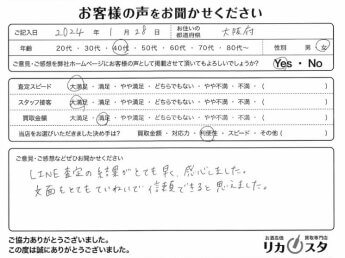 お客様の声をお聞かせください
ご記入日 2024年 1月 28日 お住いの都道府県 大阪府
年齢 20代・30代・40代・50代・60代・70代・80代〜 性別 男・女
ご意見・ご感想を弊社ホームページにお客様の声として掲載させて頂いてもよろしいでしょうか? Yes・No
査定スピード 大満足・満足・やや満足・どちらでもない・やや不満・不満( )
スタッフ接客 大満足・満足・やや満足・どちらでもない・やや不満・不満( )
買取金額 大満足・満足・やや満足・どちらでもない・やや不満・不満( )
当店をお選びいただきました決め手は? 買取金額・対応力・利便性・スピード・その他( )
ご意見・ご感想などぜひお聞かせください
LINE査定の結果がとても早く、感心しました。
文面もとてもていねいで信頼できると思えました。
ご協力ありがとうございました。
この度は誠にありがとうございました。
お酒高価 買取専門店
リカスタ